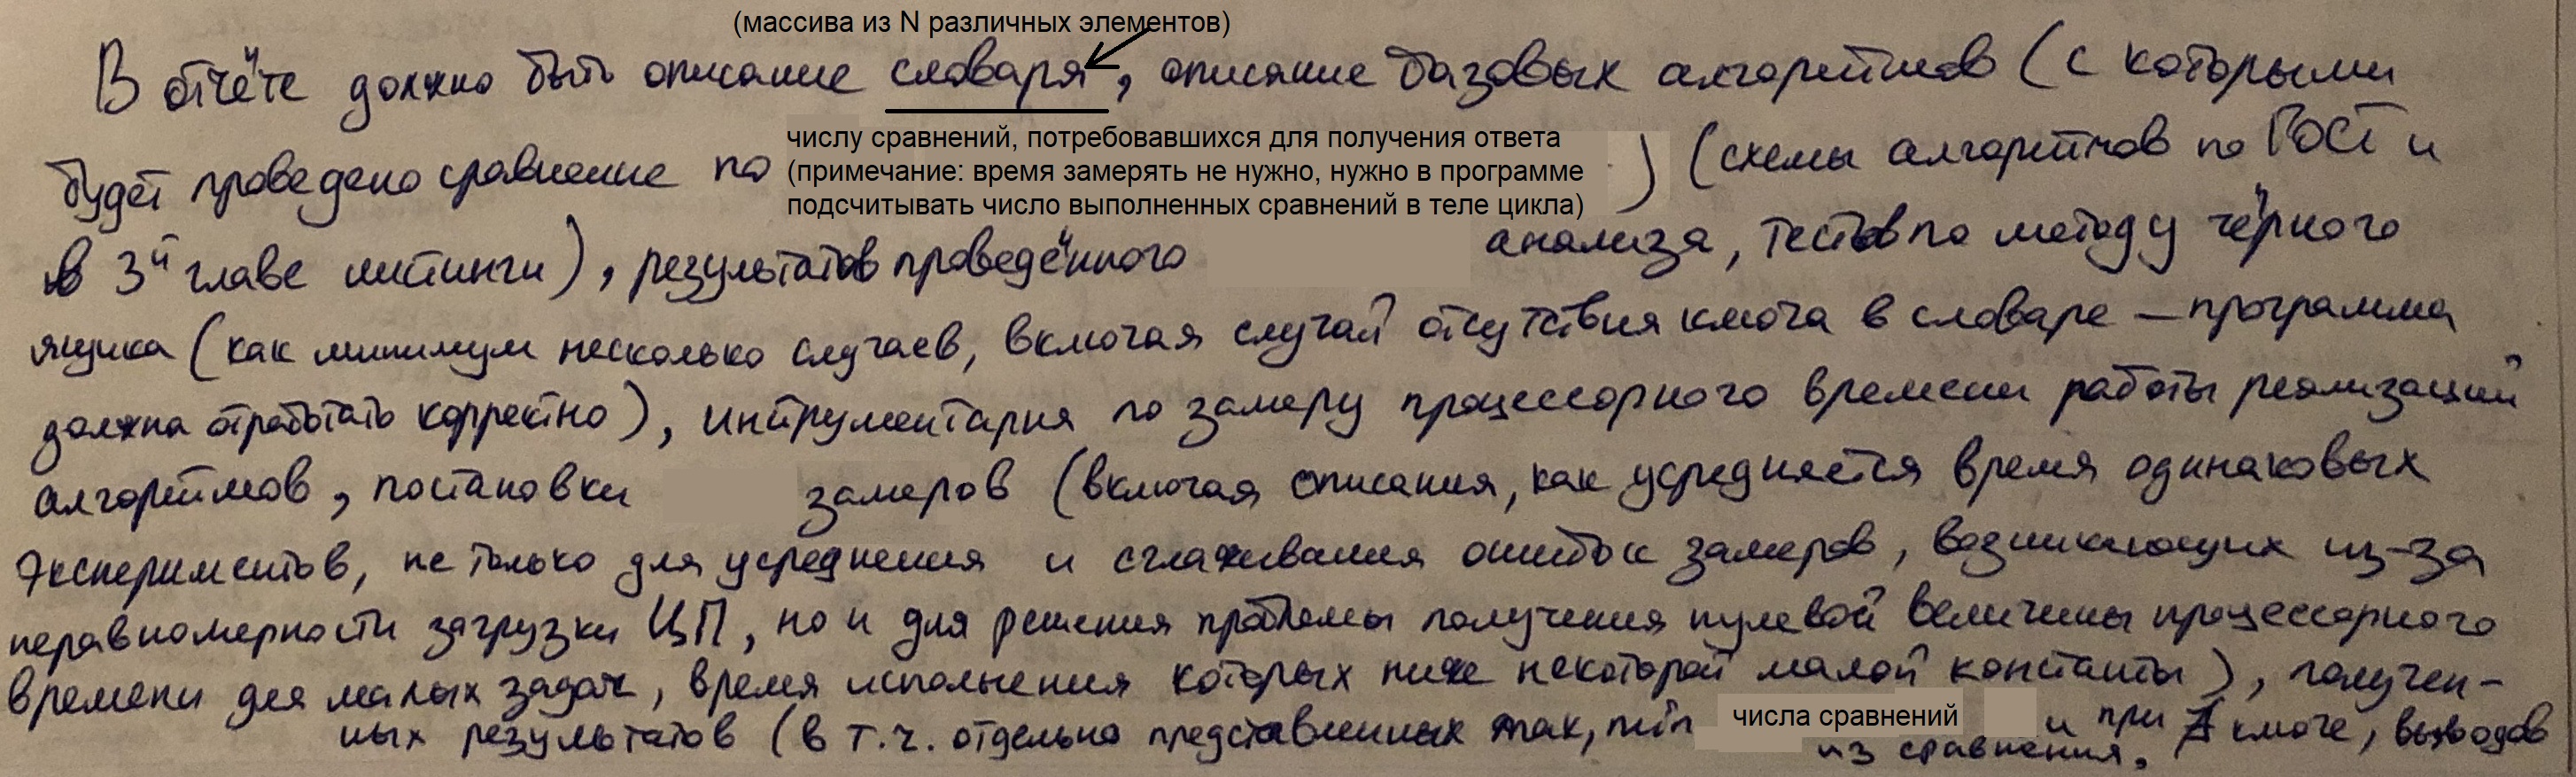 (массива из N различных элементов)
В отчёте должно быть описание словаря, описание базовых алгоритмов (с которыми
будет проведено сравнение по числу сравнений, потребовавшихся для получения ответа
(примечание: время замерять не нужно, нужно в программе
подсчитывать число выполненных сравнений в теле цикла) ) (схемы алгоритмов по ГОСТ и
в 3й главе листинги), результатов проведённого анализа, тестов по методу чёрного
ящика (как минимум несколько случаев, включая случай отсутствия ключа в словаре – программа
должна отработать корректно), интрументария по замеру процессорного времени работы реализаций
алгоритмов, постановки замеров (включая описания, как усредняется время одинаковых
экспериментов, не только для усреднения и сглаживания ошибок замеров, возникающих из-за
неравномерности загрузки ЦП, но и для решения проблемы получения нулевой величины процессорного
времени для малых задач, время исполнения которых ниже некоторой малой константы), получен-
ных результатов (в т.ч. отдельно представленных max, min числа сравнений и при ∄ ключе, выводов
из сравнения.